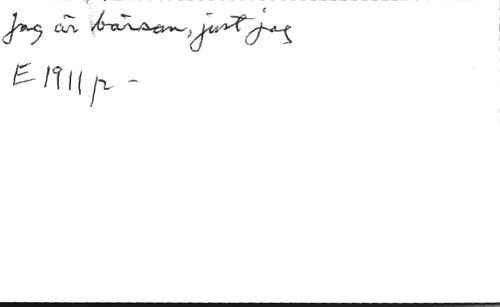 Jag är bärsan, just jag
E 1911 p -